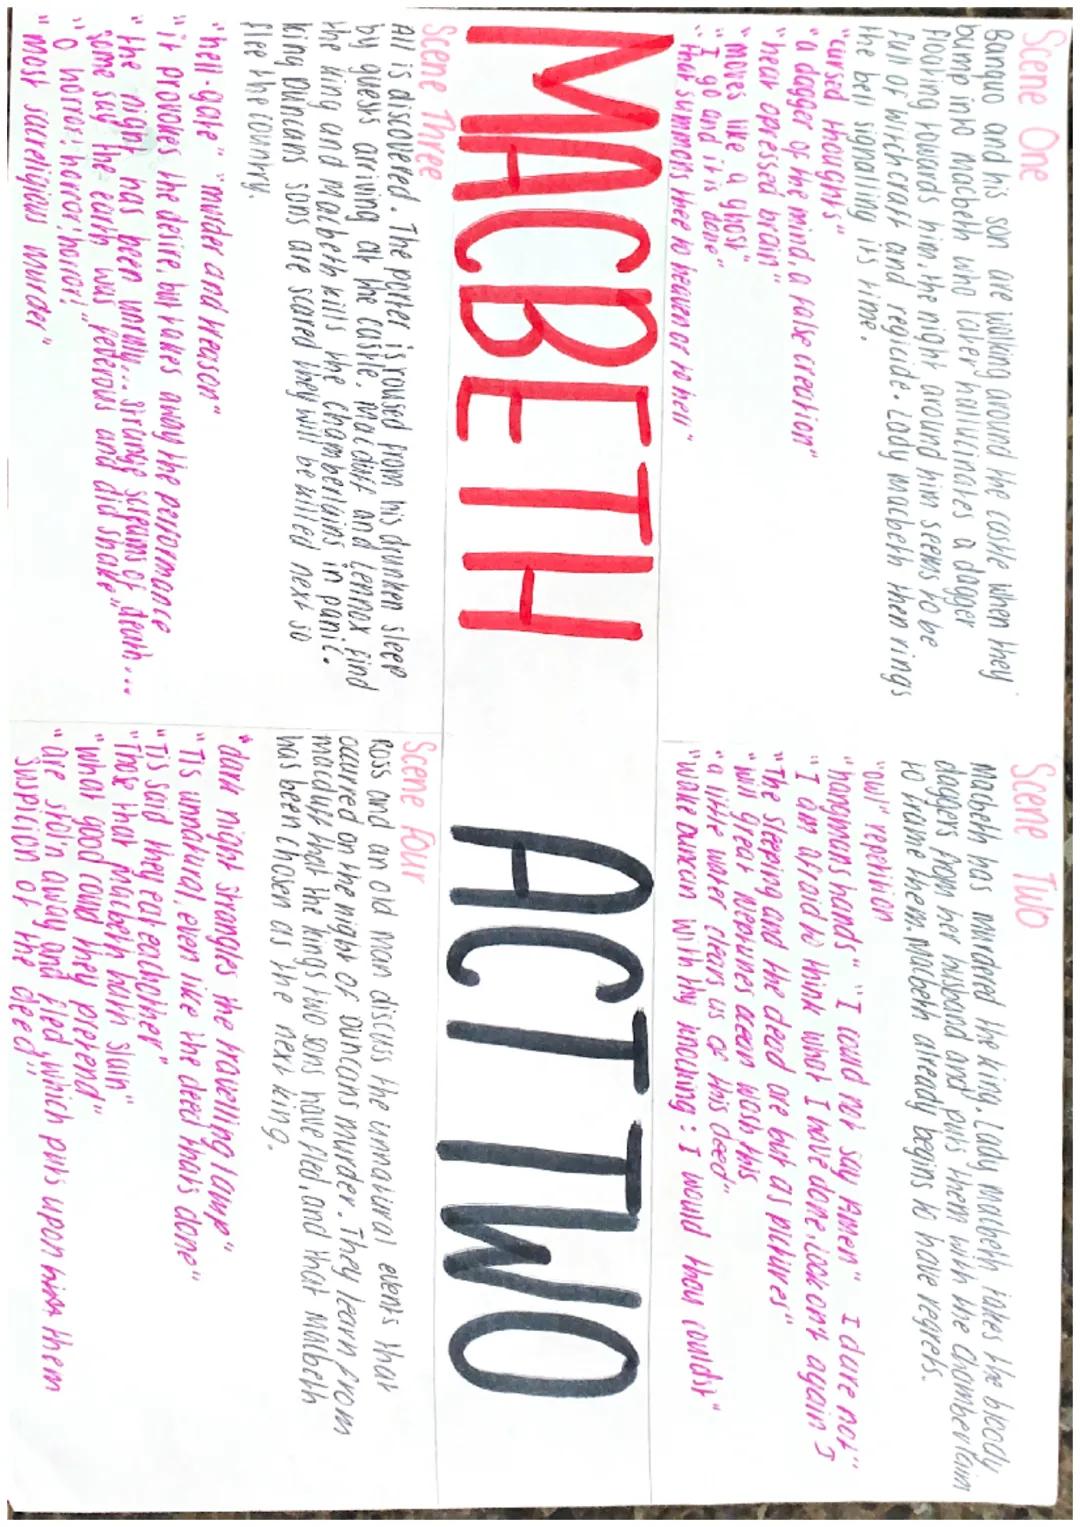 Scene One
Banquo and his son are walking around the castle when they
bump into Macbeth who later hallucinates a dagger
floating towards him, the night around him seems to be
full of witchcraft and regicide. Lady macbeth then rings
the bell signalling it's time.
"cursed thoughts"
"a dagger of the mind, a false creation"
"hear opressed brain"
"moves like a ghost"
"I go and it is done"
"that summons thee to heaven or to hell"
Scene Two
Macbeth has murdered the king. Lady Macbeth takes the bloody
daggers from her husband and puts them with the chamberlain
to frame them. Macbeth already begins to have regrets.
"owl" repetition
"hangmans hands" "I could not say Amen" I dare not"
"I am afraid to think what I have done, look on't again I
"The sleeping and the dead are but as pictures"
"will great Neptunes ocean wash this
"a little water clears us of this deed"
"wake Duncan with thy knocking: I would thou couldst"
MACBETH ACT TWO
Scene Three
All is discovered. The porter is roused from his drunken sleep
by guests arriving at the castle. Macduff and Lennox find
the king and Macbeth kills the chamberlains in panic.
King Duncans sons are scared they will be killed next so
flee the country.
"hell-gate" "murder and treason"
"it provokes the desire, but takes away the performance
"the night has been unruly... strange screams of death...
"some say the earth was feverous and did shake"
"O horror! horror! horror!"
"most sacreligious murder"
Scene Four
Ross and an old man discuss the unnatural events that
occurred on the night of Duncans murder. They learn from
macduff that the kings two sons have fled, and that Macbeth
has been chosen as the next king.
"dark night strangles the travelling lamp"
"Tis unnatural, even like the deed thats done"
"Tis said they eat eachother"
"Those that Macbeth hath slain"
"what good could they pretend"
"are stol'n away and fled which puts upon them
suspicion of the deed"